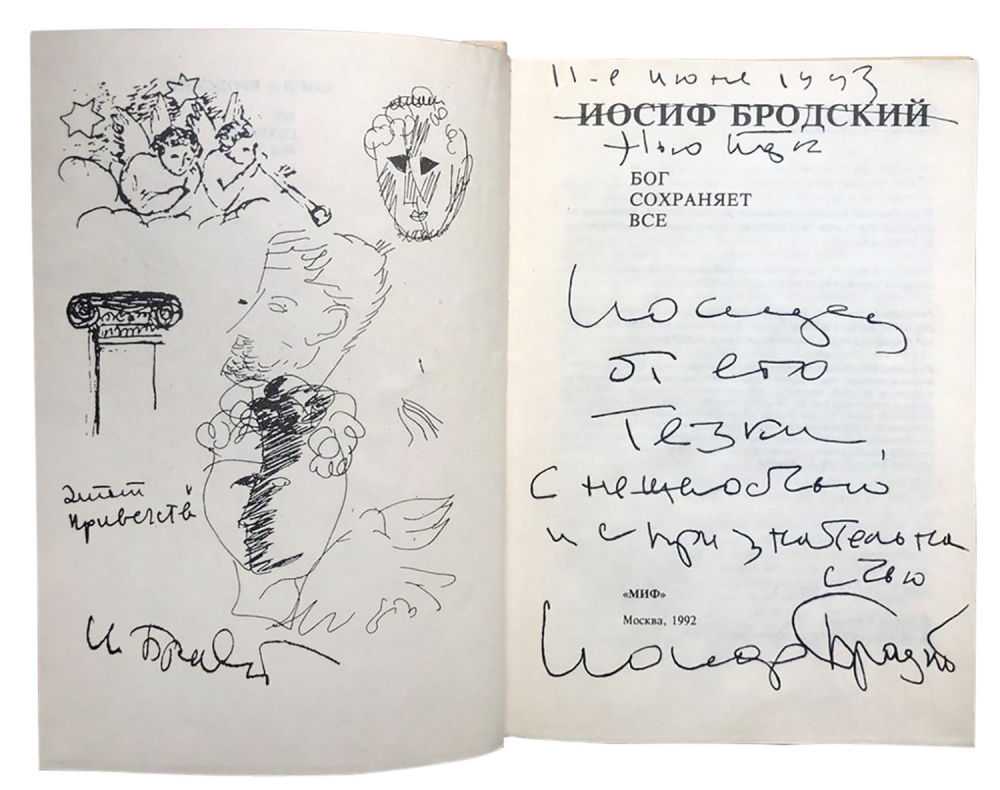 И. Бродский
11-е июня 1993
ИОСИФ БРОДСКИЙ
Нью Йорк
БОГ
СОХРАНЯЕТ
ВСЕ
Иосифу
от его
тезки
с нежностью
и с признательно
стью
«МИФ»
Москва, 1992
Иосиф Бродский